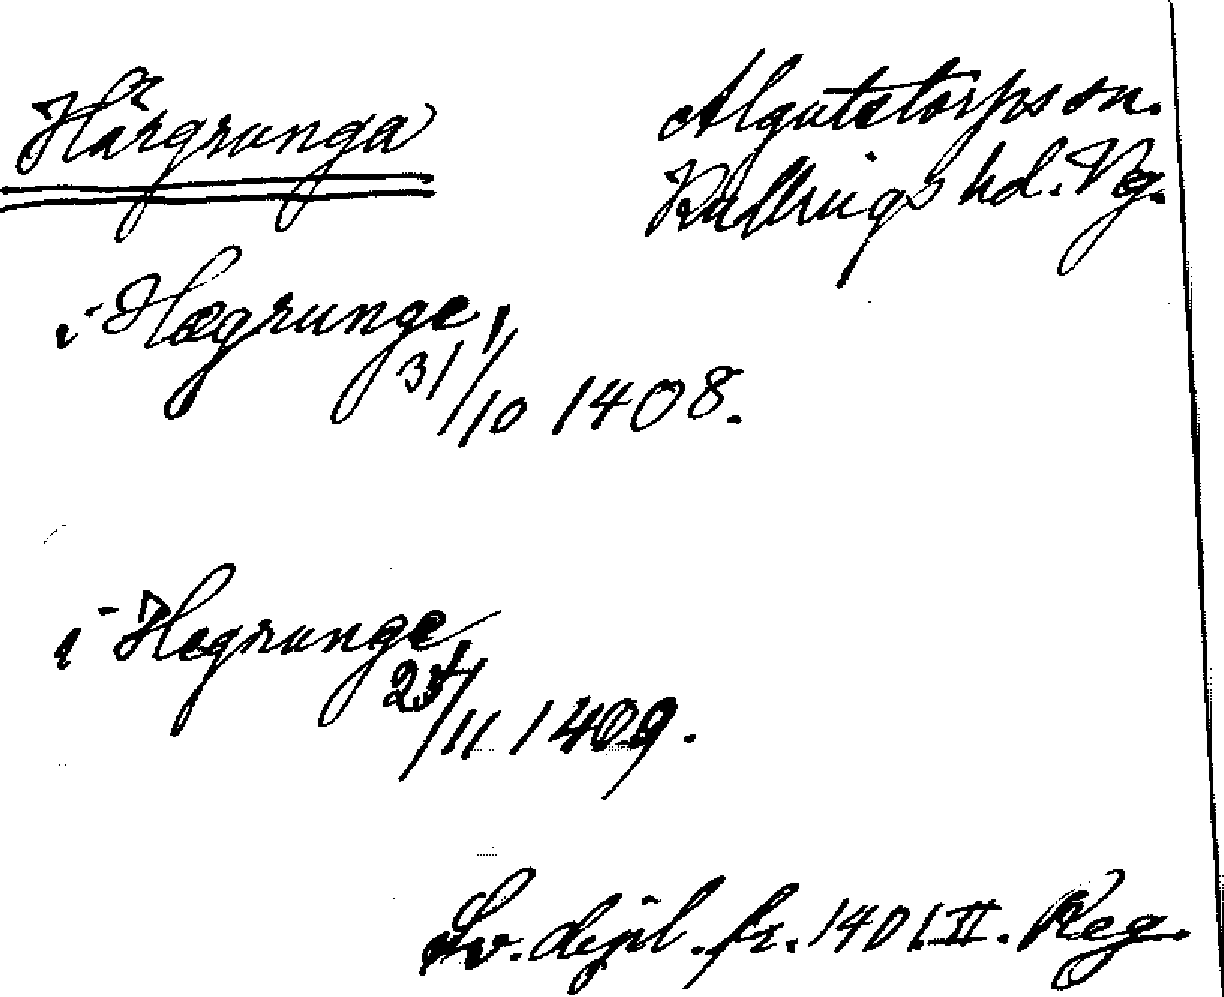 Härgrunga
Algutstorps sn.
Kullings hd. Vg.
i Hægrunge,
31/10 1408.
i Hegrunge,
23/11 1409.
Sv. dipl. fr. 1401. II. Reg.